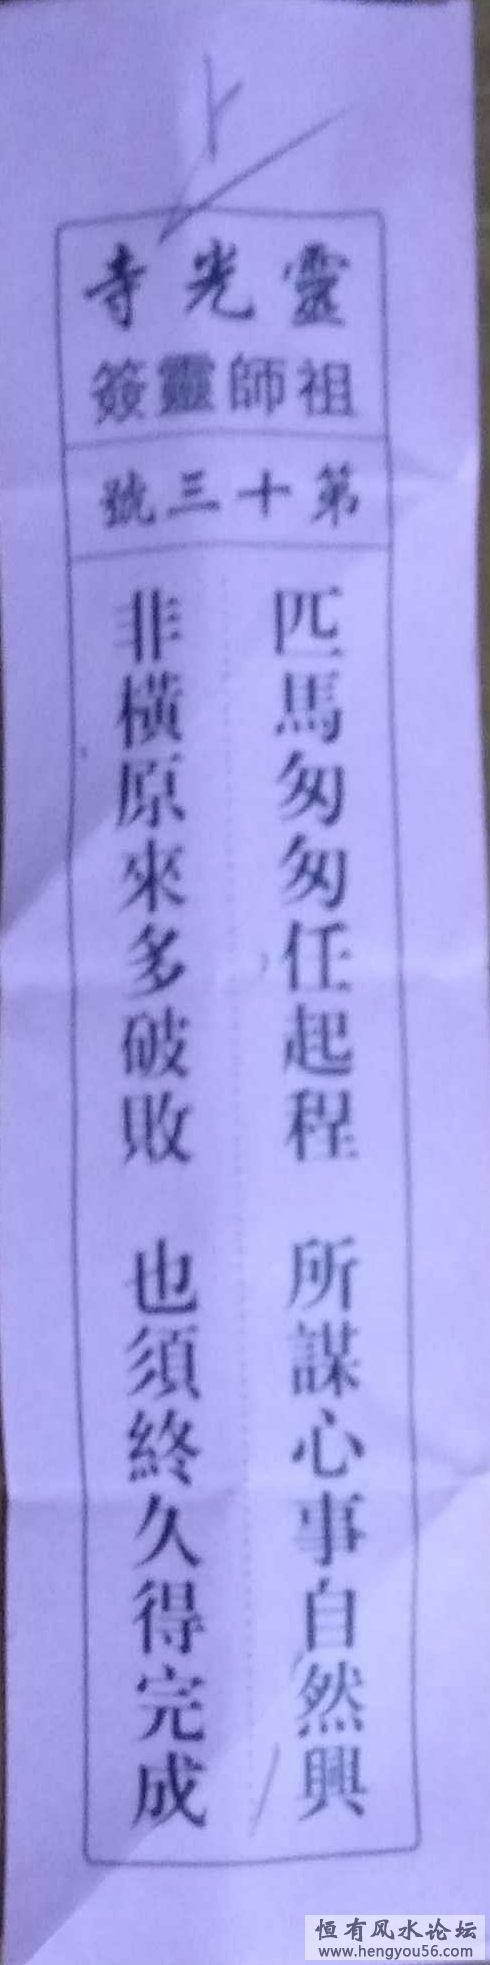 上
靈光寺
祖師靈簽
第十三號
匹馬匆匆任起程 所謀心事自然興
非橫原來多破敗 也須終久得完成
恒有风水论坛
www.hengyou56.com